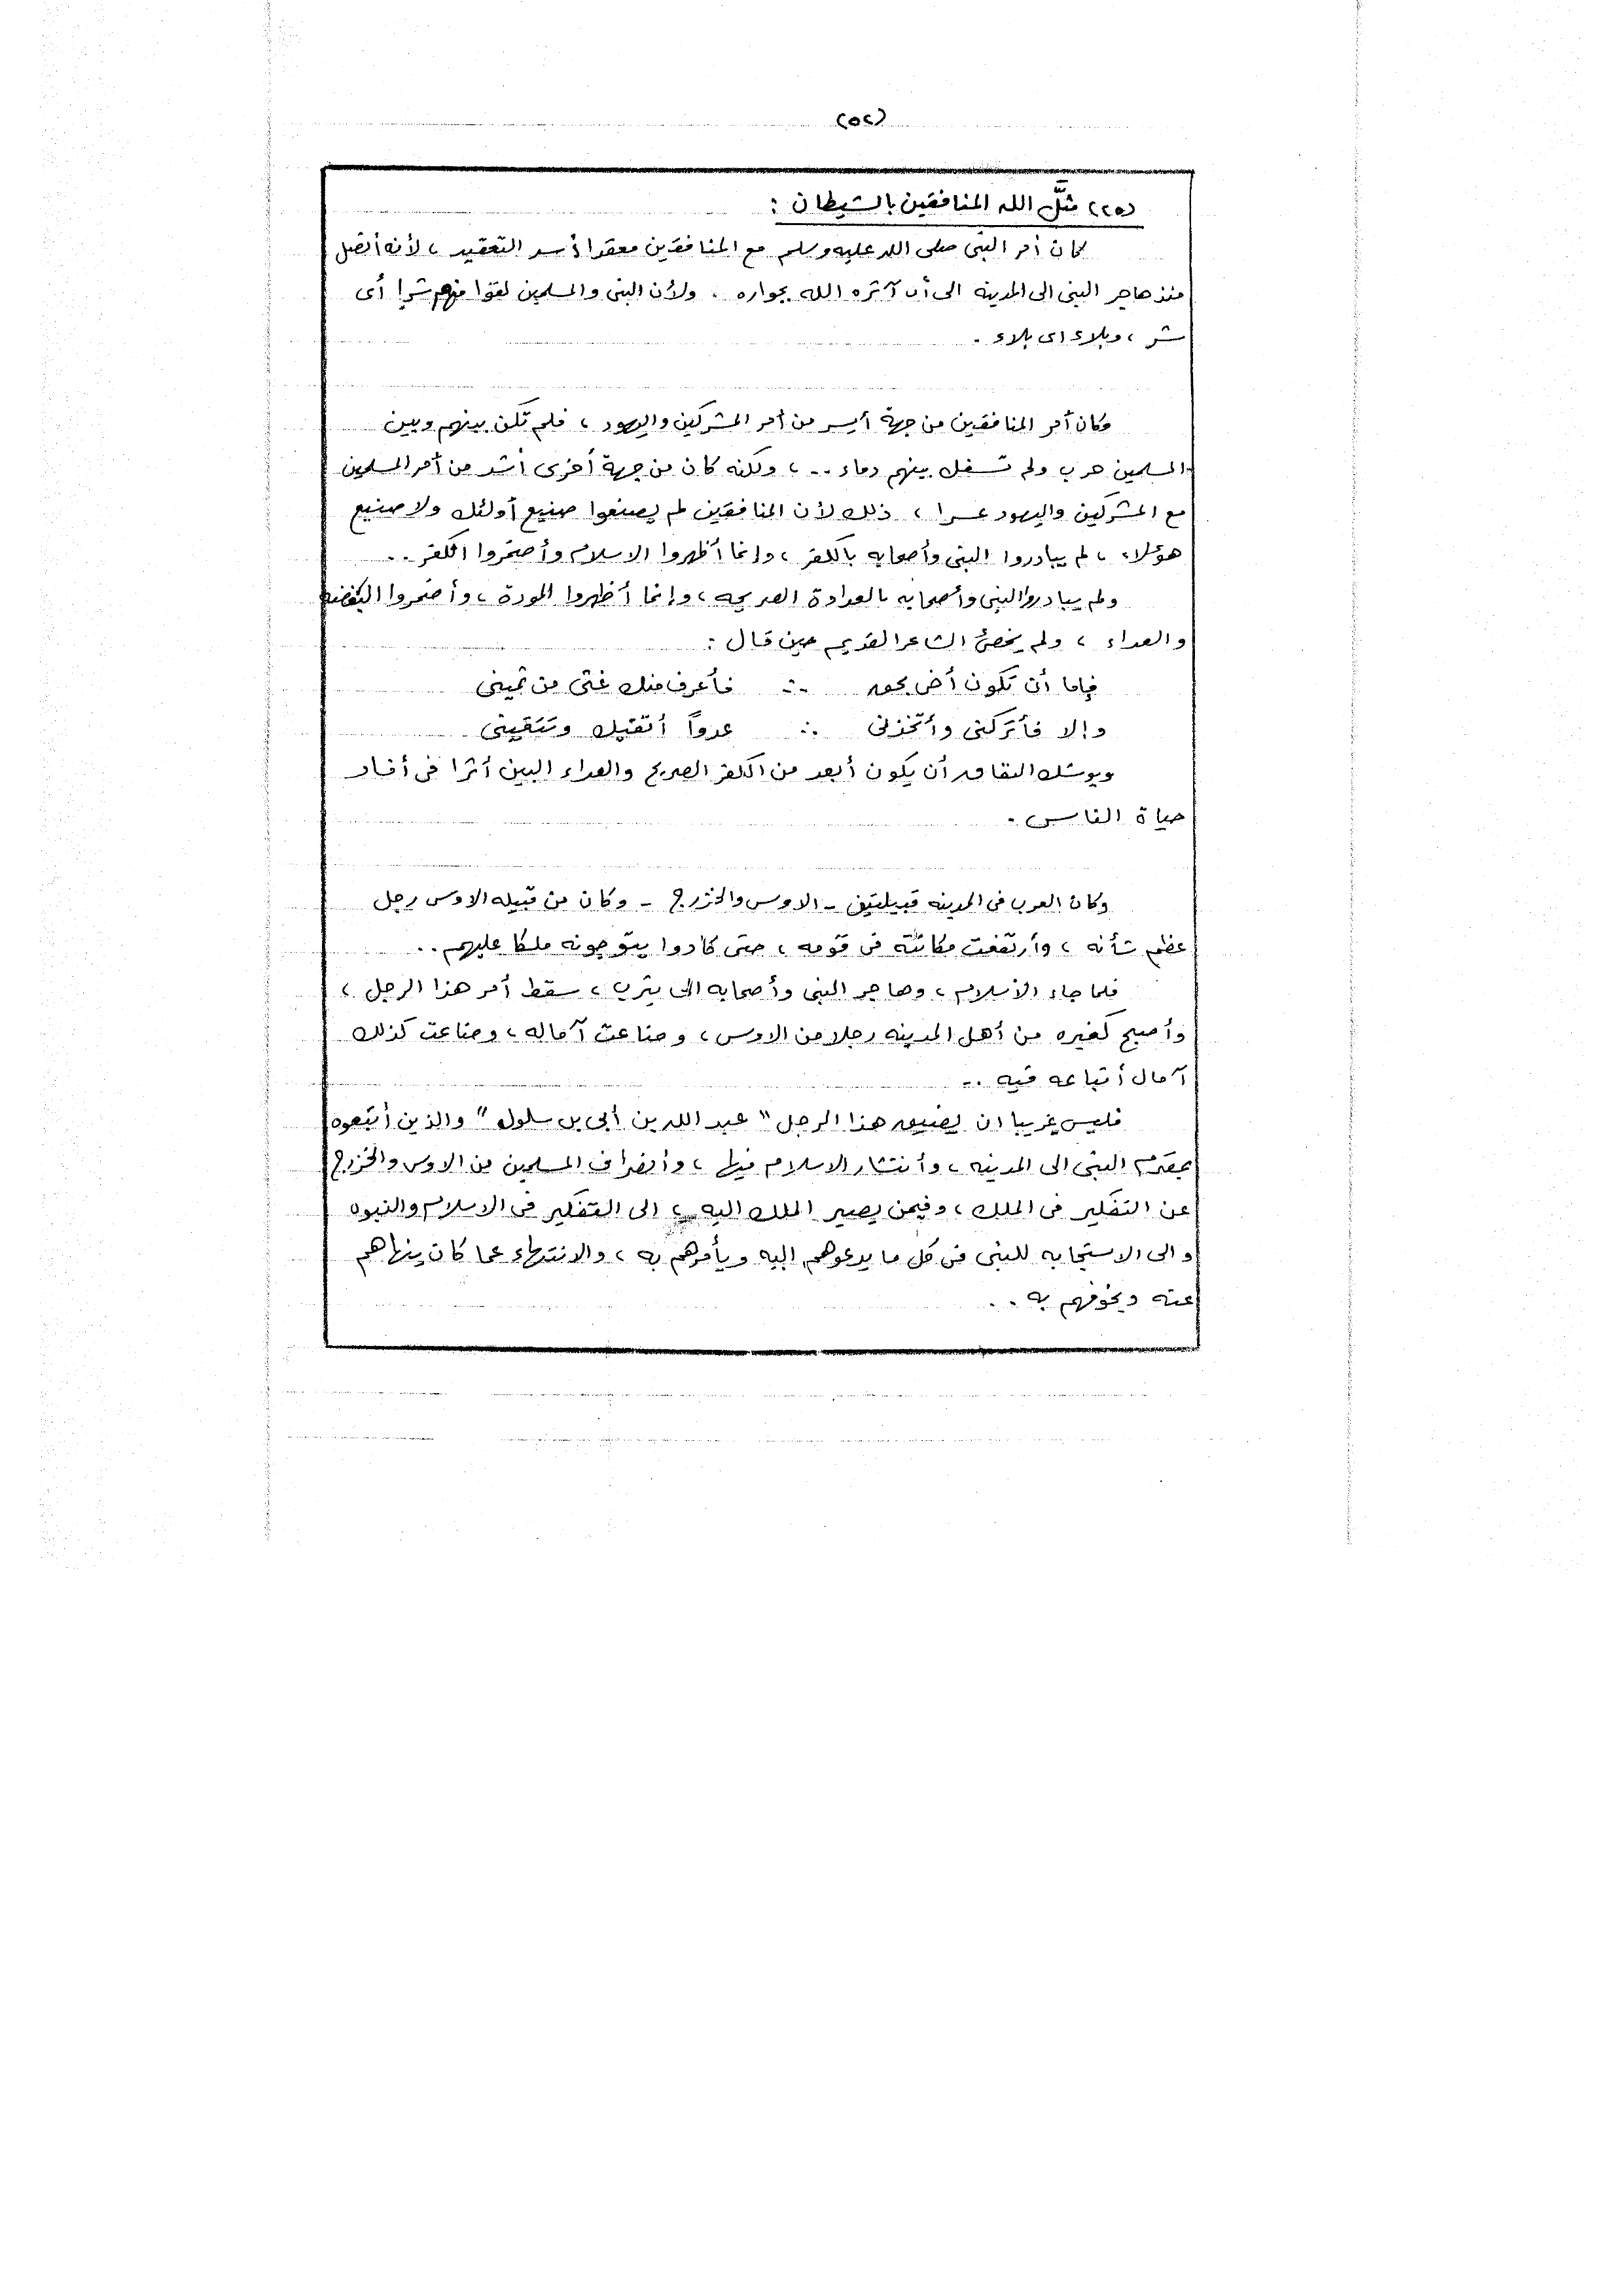 (٥٢)
(٢٢٥) مثَّل الله المنافقين بالشيطان :
كان أمر النبى صلى الله عليه وسلم مع المنافقين معقدا أشد التعقيد ، لأنه أتصل
منذ هاجر النبى الى المدينه الى أن آثره الله بجواره . ولأن النبى والمسلمين لقوا منهم شرا أى
شر ، وبلاء اى بلاء .
وكان أمر المنافقين من جهة أيسر من أمر المشركين واليهود ، فلم تكن بينهم وبين
المسلمين حرب ولم تسفك بينهم دماء .. ، ولكنه كان من جهة أخرى أشد من أمر المسلمين
مع المشركين واليهود عسرا ، ذلك لأن المنافقين لم يصنعوا صنيع أولئك ولا صنيع
هؤلاء ، لم يبادروا النبى وأصحابه بالكفر ، وإنما أظهروا الاسلام وأضمروا الكفر ..
ولم يبادروا النبى وأصحابه بالعداوة الصريحه ، وإنما أظهروا المودة ، وأضمروا البغضه
والعداء ، ولم يخطئ الشاعر القديم حين قال :
فإما أن تكون أخى بحق ∴ فأعرف منك غثى من ثمينى
وإلا فأتركنى وأتخذنى ∴ عدواً أتقيك وتتقينى
ويوشك النفاق أن يكون أبعد من الكفر الصريح والعداء البين أثرا فى أفساد
حياة الناس .
وكان العرب فى المدينه قبيلتين - الاوس والخزرج - وكان من قبيله الاوس رجل
عظم شأنه ، وأرتفعت مكانته فى قومه ، حتى كادوا يتوجونه ملكا عليهم ..
فلما جاء الأسلام ، وهاجر النبى وأصحابه الى يثرب ، سقط أمر هذا الرجل ،
وأصبح كغيره من أهل المدينه رجلا من الاوس ، وضاعت آماله ، وضاعت كذلك
آمال أتباعه فيه ..
فليس غريبا ان يضيق هذا الرجل " عبد الله بن أبى بن سلول " والذين أتبعوه
بمقدم النبى الى المدينه ، وأنتشار الاسلام فيها ، وأنصراف المسلمين من الاوس والخزرج
عن التفكير فى الملك ، وفيمن يصير الملك اليه ، الى التفكير فى الاسلام والنبوه
والى الاستجابه للنبى فى كل ما يدعوهم اليه ويأمرهم به ، والانتهاء عما كان ينهاهم
عنه ويخوفهم به ..